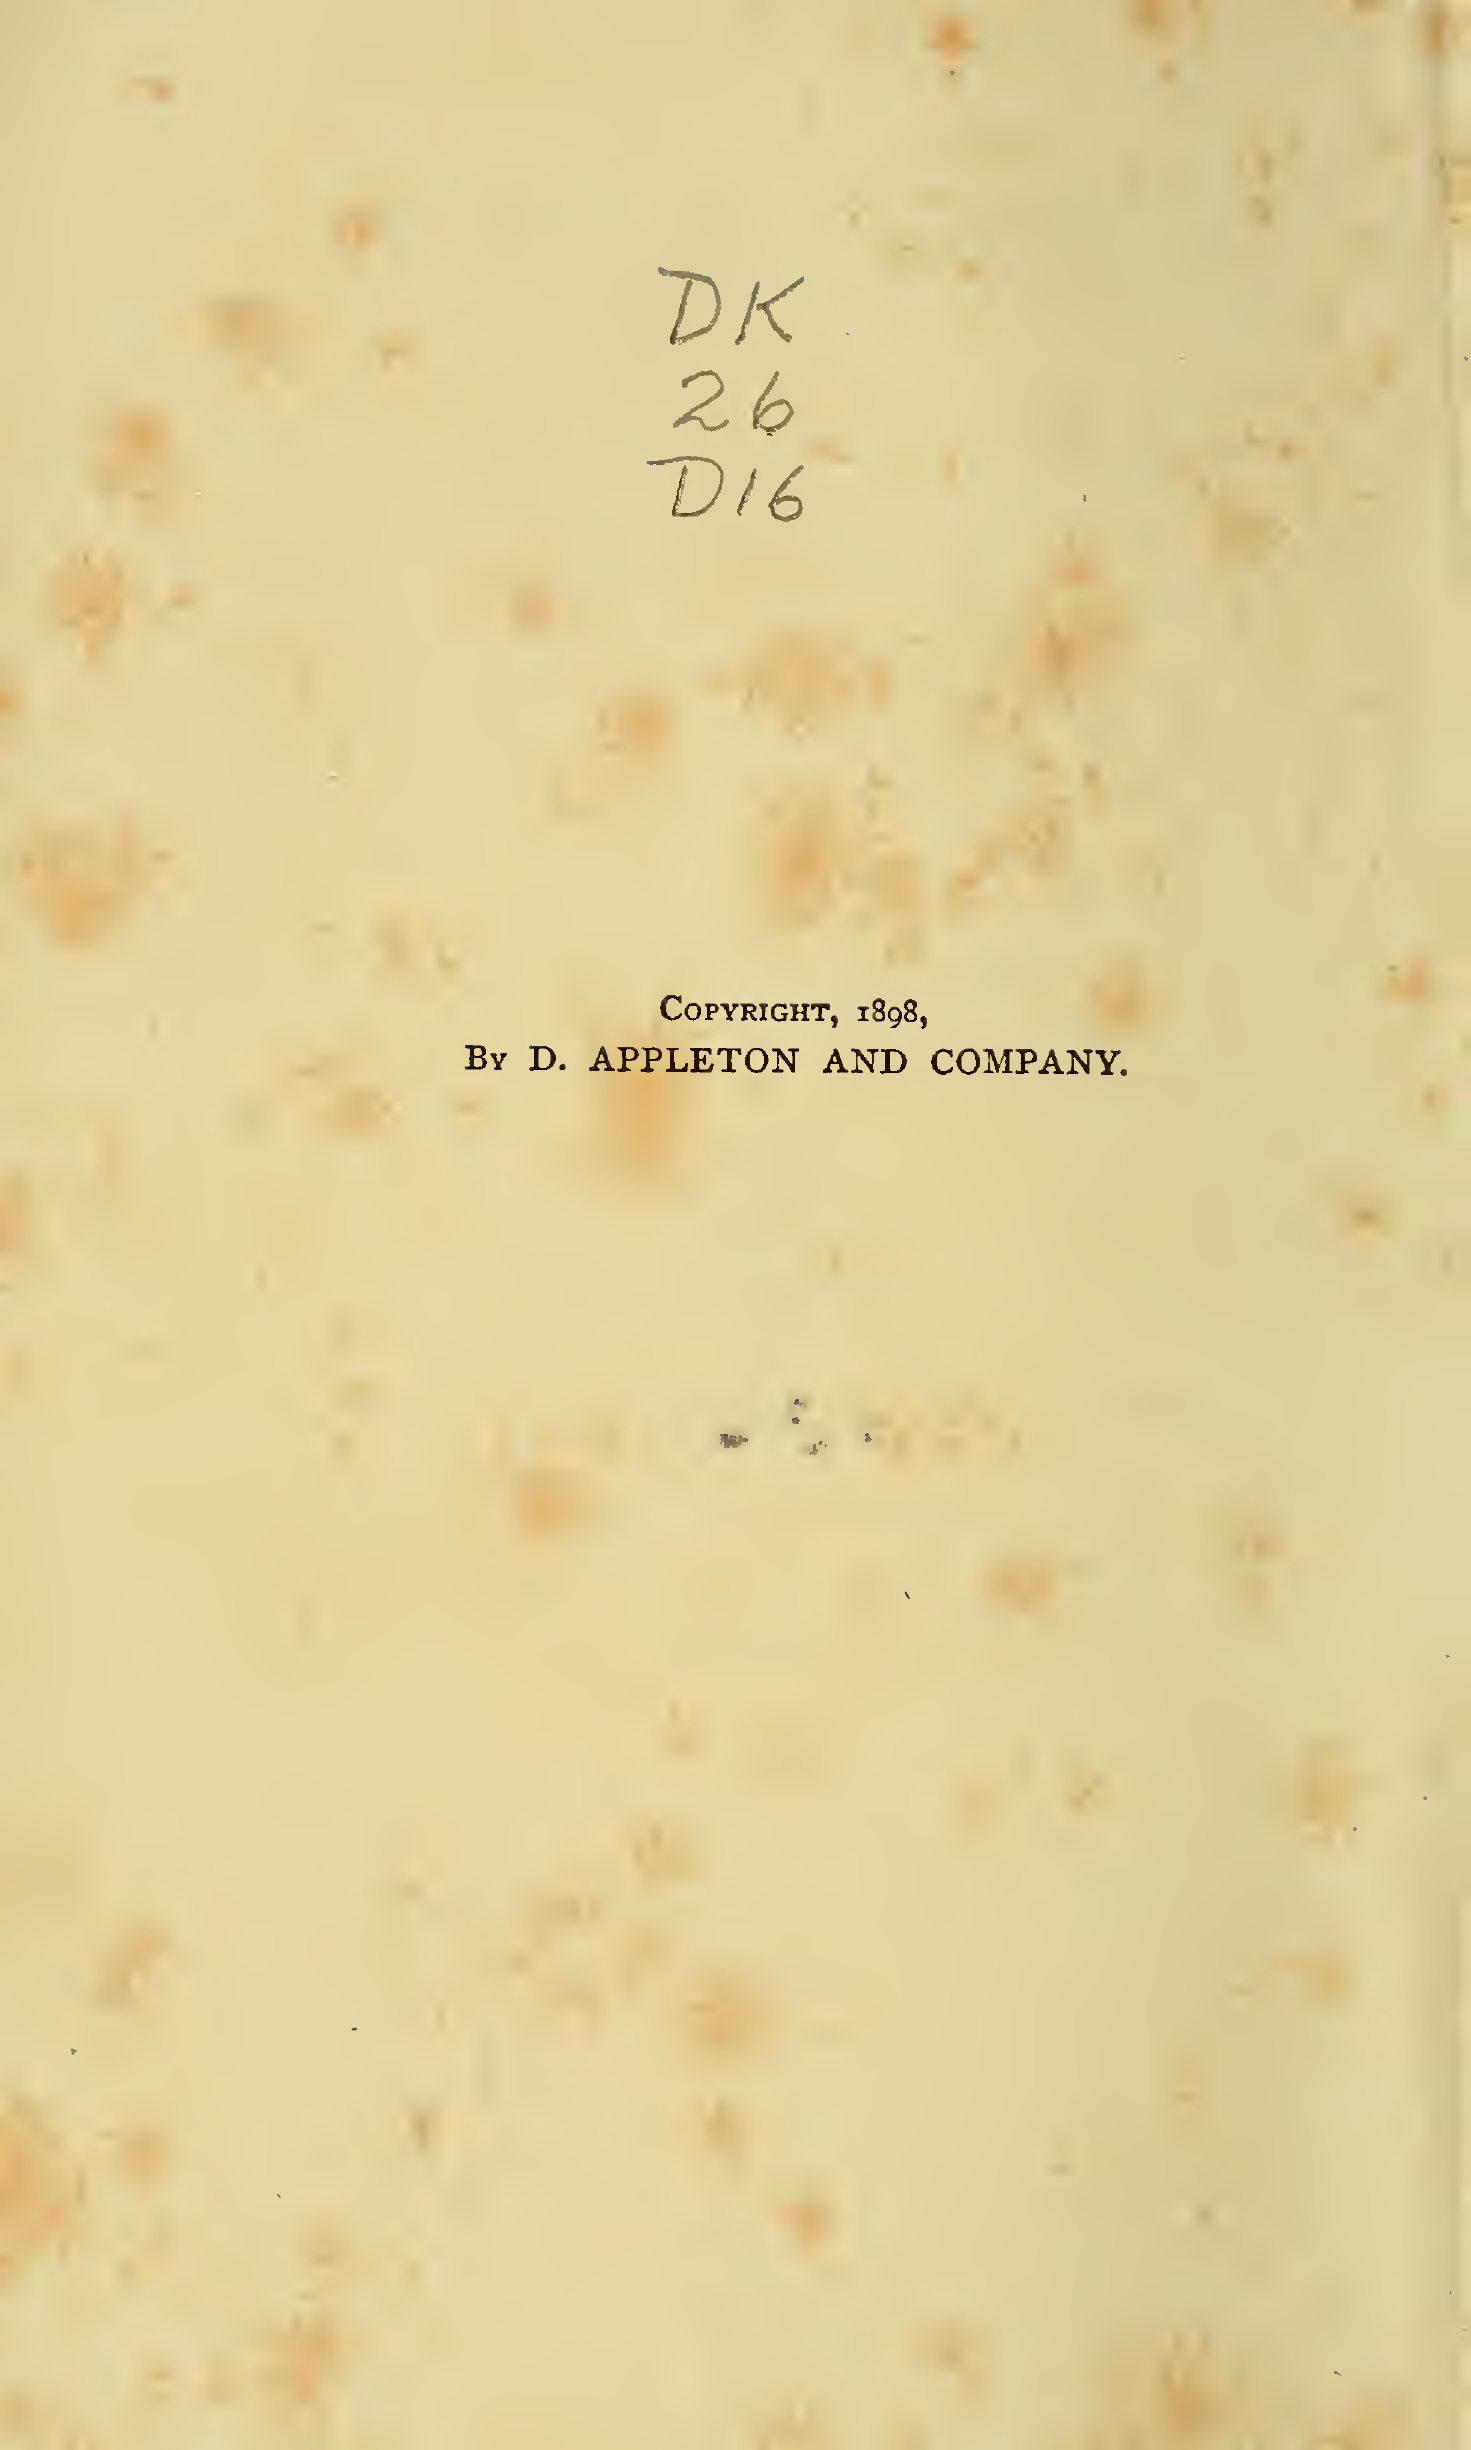 DK
26
D16
Copyright, 1898,
By D. APPLETON AND COMPANY.